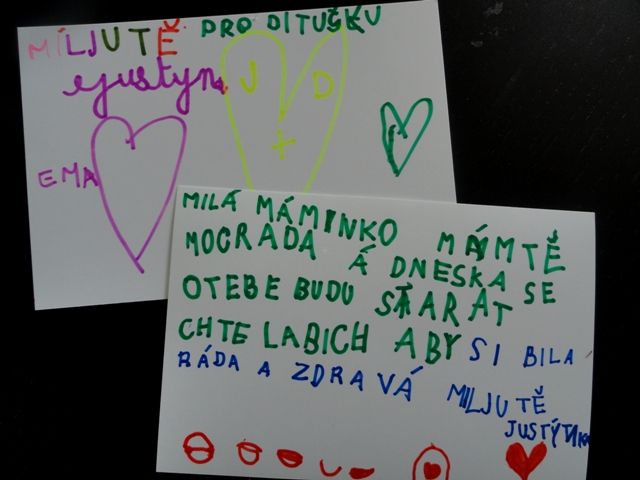 MILJU TĚ PRO DITUŠKU
Justyna
J D
+
EMA
MILÁ MÁMINKO MÁMTĚ
MOCRÁDA Á DNESKA SE
OTEBE BUDU STARAT
CHTELABICH ABY SI BILA
RÁDA A ZDRAVÁ MILJU TĚ
JUSTÝNKA